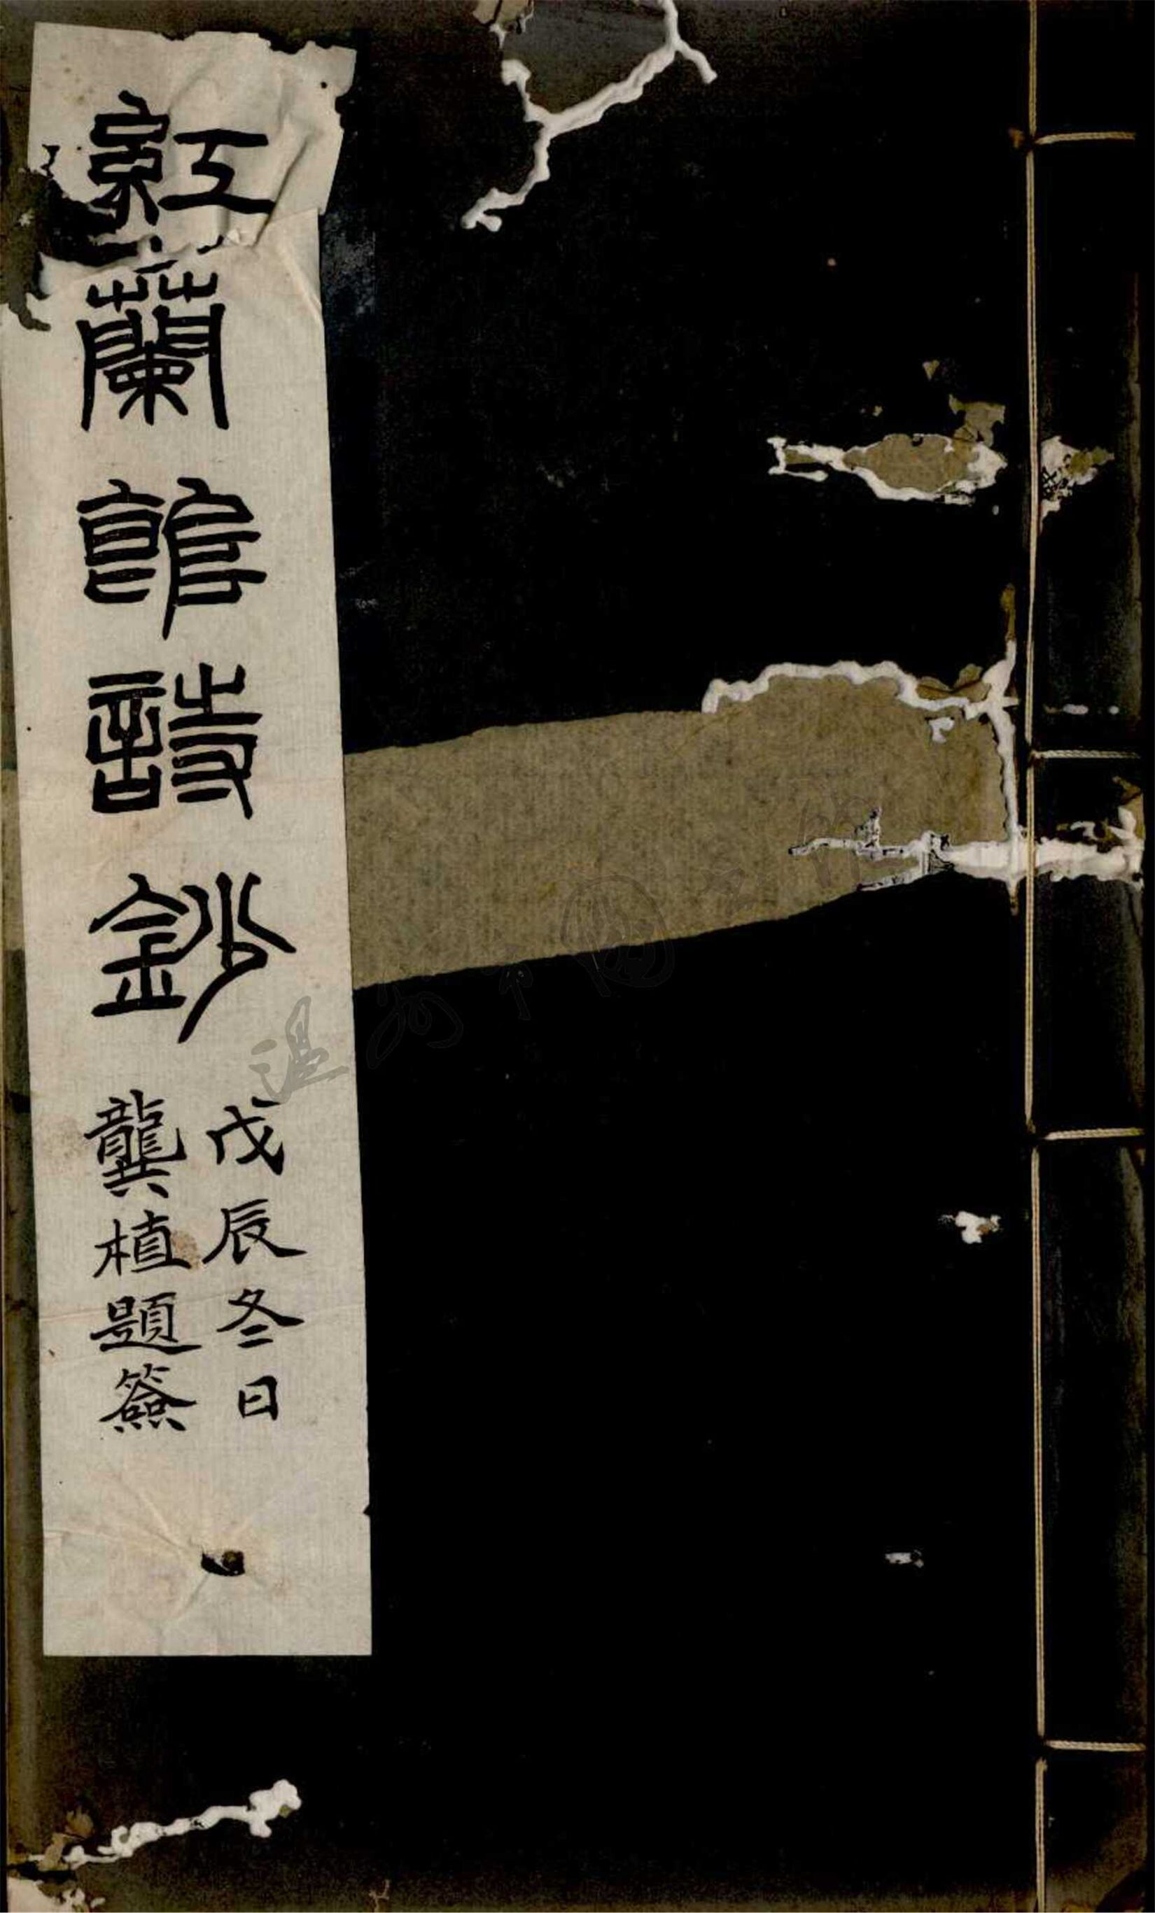 紅蘭館詩鈔
戊辰冬日
龔植題簽